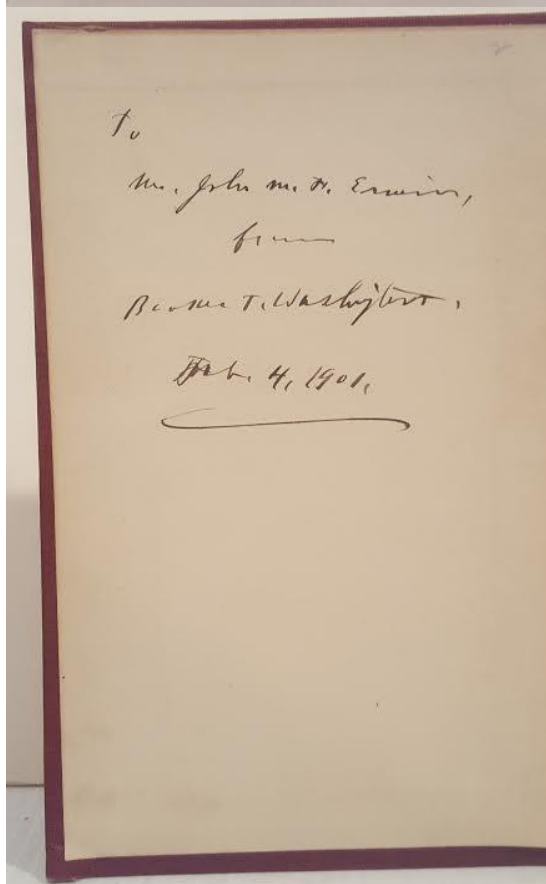 To
Mr. John M. H. Erwin,
from
Booker T. Washington.
Feb. 4, 1901.